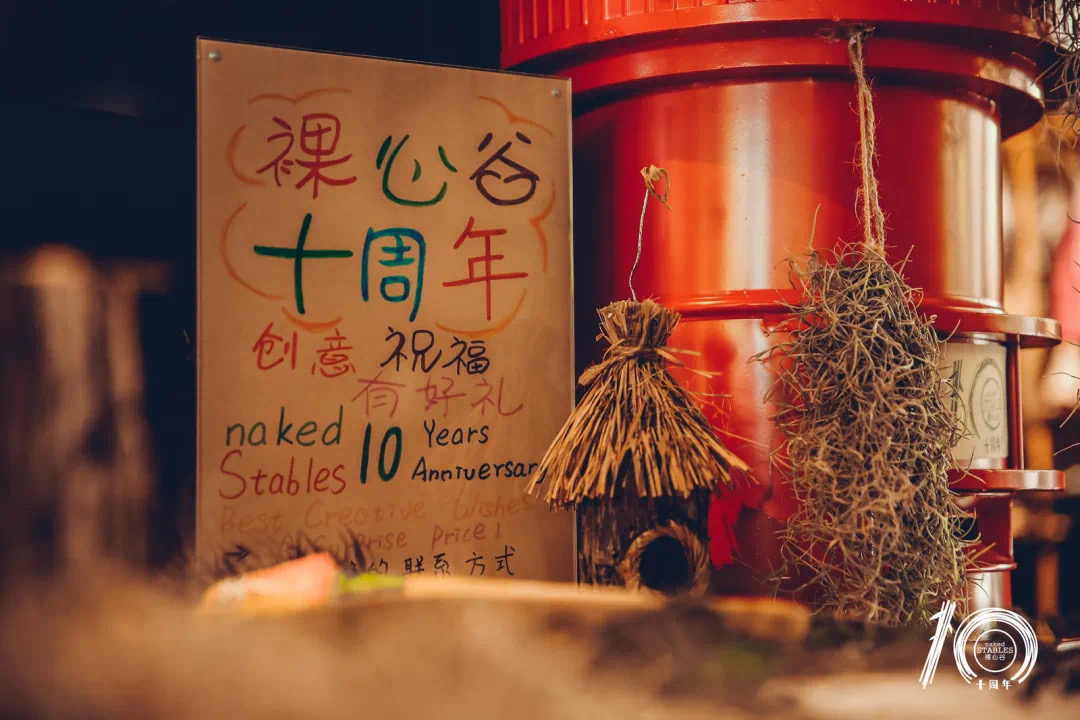 裸心谷
十周年
创意 祝福
有好礼
naked
Stables
10
Years
Anniversar
Best Creative Wishes
Price!
的 联系方式
十周年
naked
STABLES
裸心谷
十周年